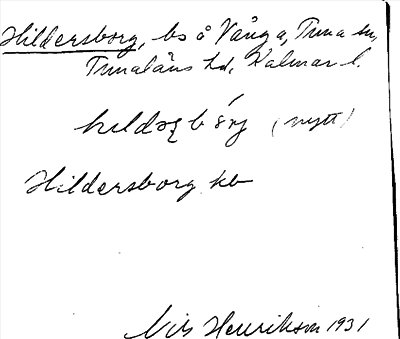 Hildersborg, bs å Vånga, Tuna sn,
Tunaläns hd, Kalmar l.
(nytt)
Hildersborg kb
Nils Henrikson 1931